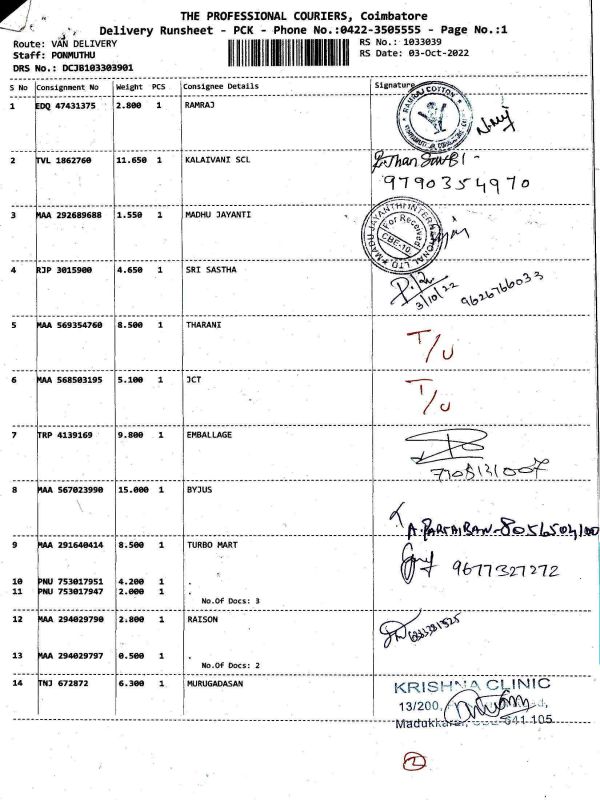 THE PROFESSIONAL COURIERS, Coimbatore
Delivery Runsheet - PCK - Phone No.:0422-3505555 - Page No.:1
Route: VAN DELIVERY RS No.: 1033039
Staff: PONMUTHU RS Date: 03-Oct-2022
DRS No.: DCJB103303901
S No Consignment No Weight PCS Consignee Details Signature
1 EDQ 47431375 2.800 1 RAMRAJ
RAMRAJ COTTON
2 TVL 1862760 11.650 1 KALAIVANI SCL
9790354970
3 MAA 292689688 1.550 1 MADHU JAYANTI
MADU JAYANTHI INTERNATIONAL LTD
For Received
CBE-10
4 RJP 3015900 4.650 1 SRI SASTHA
3/10/22 9626766033
5 MAA 569354760 8.500 1 THARANI
T/U
6 MAA 568503195 5.100 1 JCT
T/U
7 TRP 4139169 9.800 1 EMBALLAGE
7708131007
8 MAA 567023990 15.000 1 BYJUS
9 MAA 291640414 8.500 1 TURBO MART
9677327272
10 PNU 753017951 4.200 1 .
11 PNU 753017947 2.000 1 .
No.Of Docs: 3
12 MAA 294029790 2.800 1 RAISON
13 MAA 294029797 0.500 1 .
No.Of Docs: 2
14 TNJ 672872 6.300 1 MURUGADASAN
KRISHNA CLINIC
13/200,
Madukkarai, 641 105
2